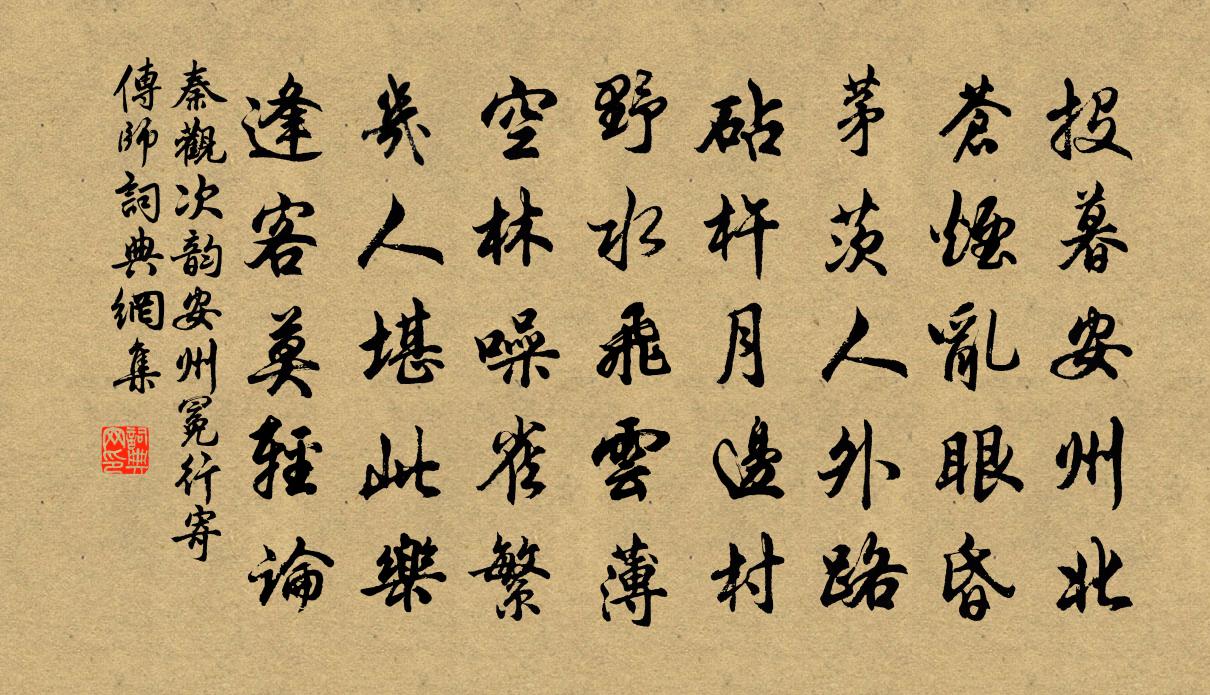 投暮安州北
蒼煙亂眼昏
茅茨人外路
砧杵月邊村
野水飛雲薄
空林噪雀繁
幾人堪此樂
逢客莫輕論
秦觀次韵安州晚行寄
傳師詞典網集
詞典网印